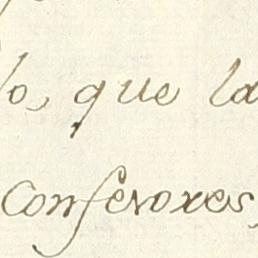 lo, que la
confesores,